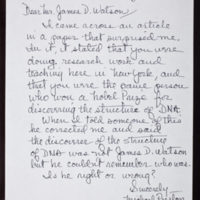 Dear Mr. James D. Watson
I came across an article
in a paper that surprised me.
In it, it stated that you were
doing research work and
teaching here in New York, and
that you were the same person
who won a Nobel Prize
discovering the structure of DNA.
When I told someone of this
he corrected me and said
the discoverer of the structure
of DNA was not James D. Watson
but he couldn't remember who was.
Is he right or wrong?
Sincerely